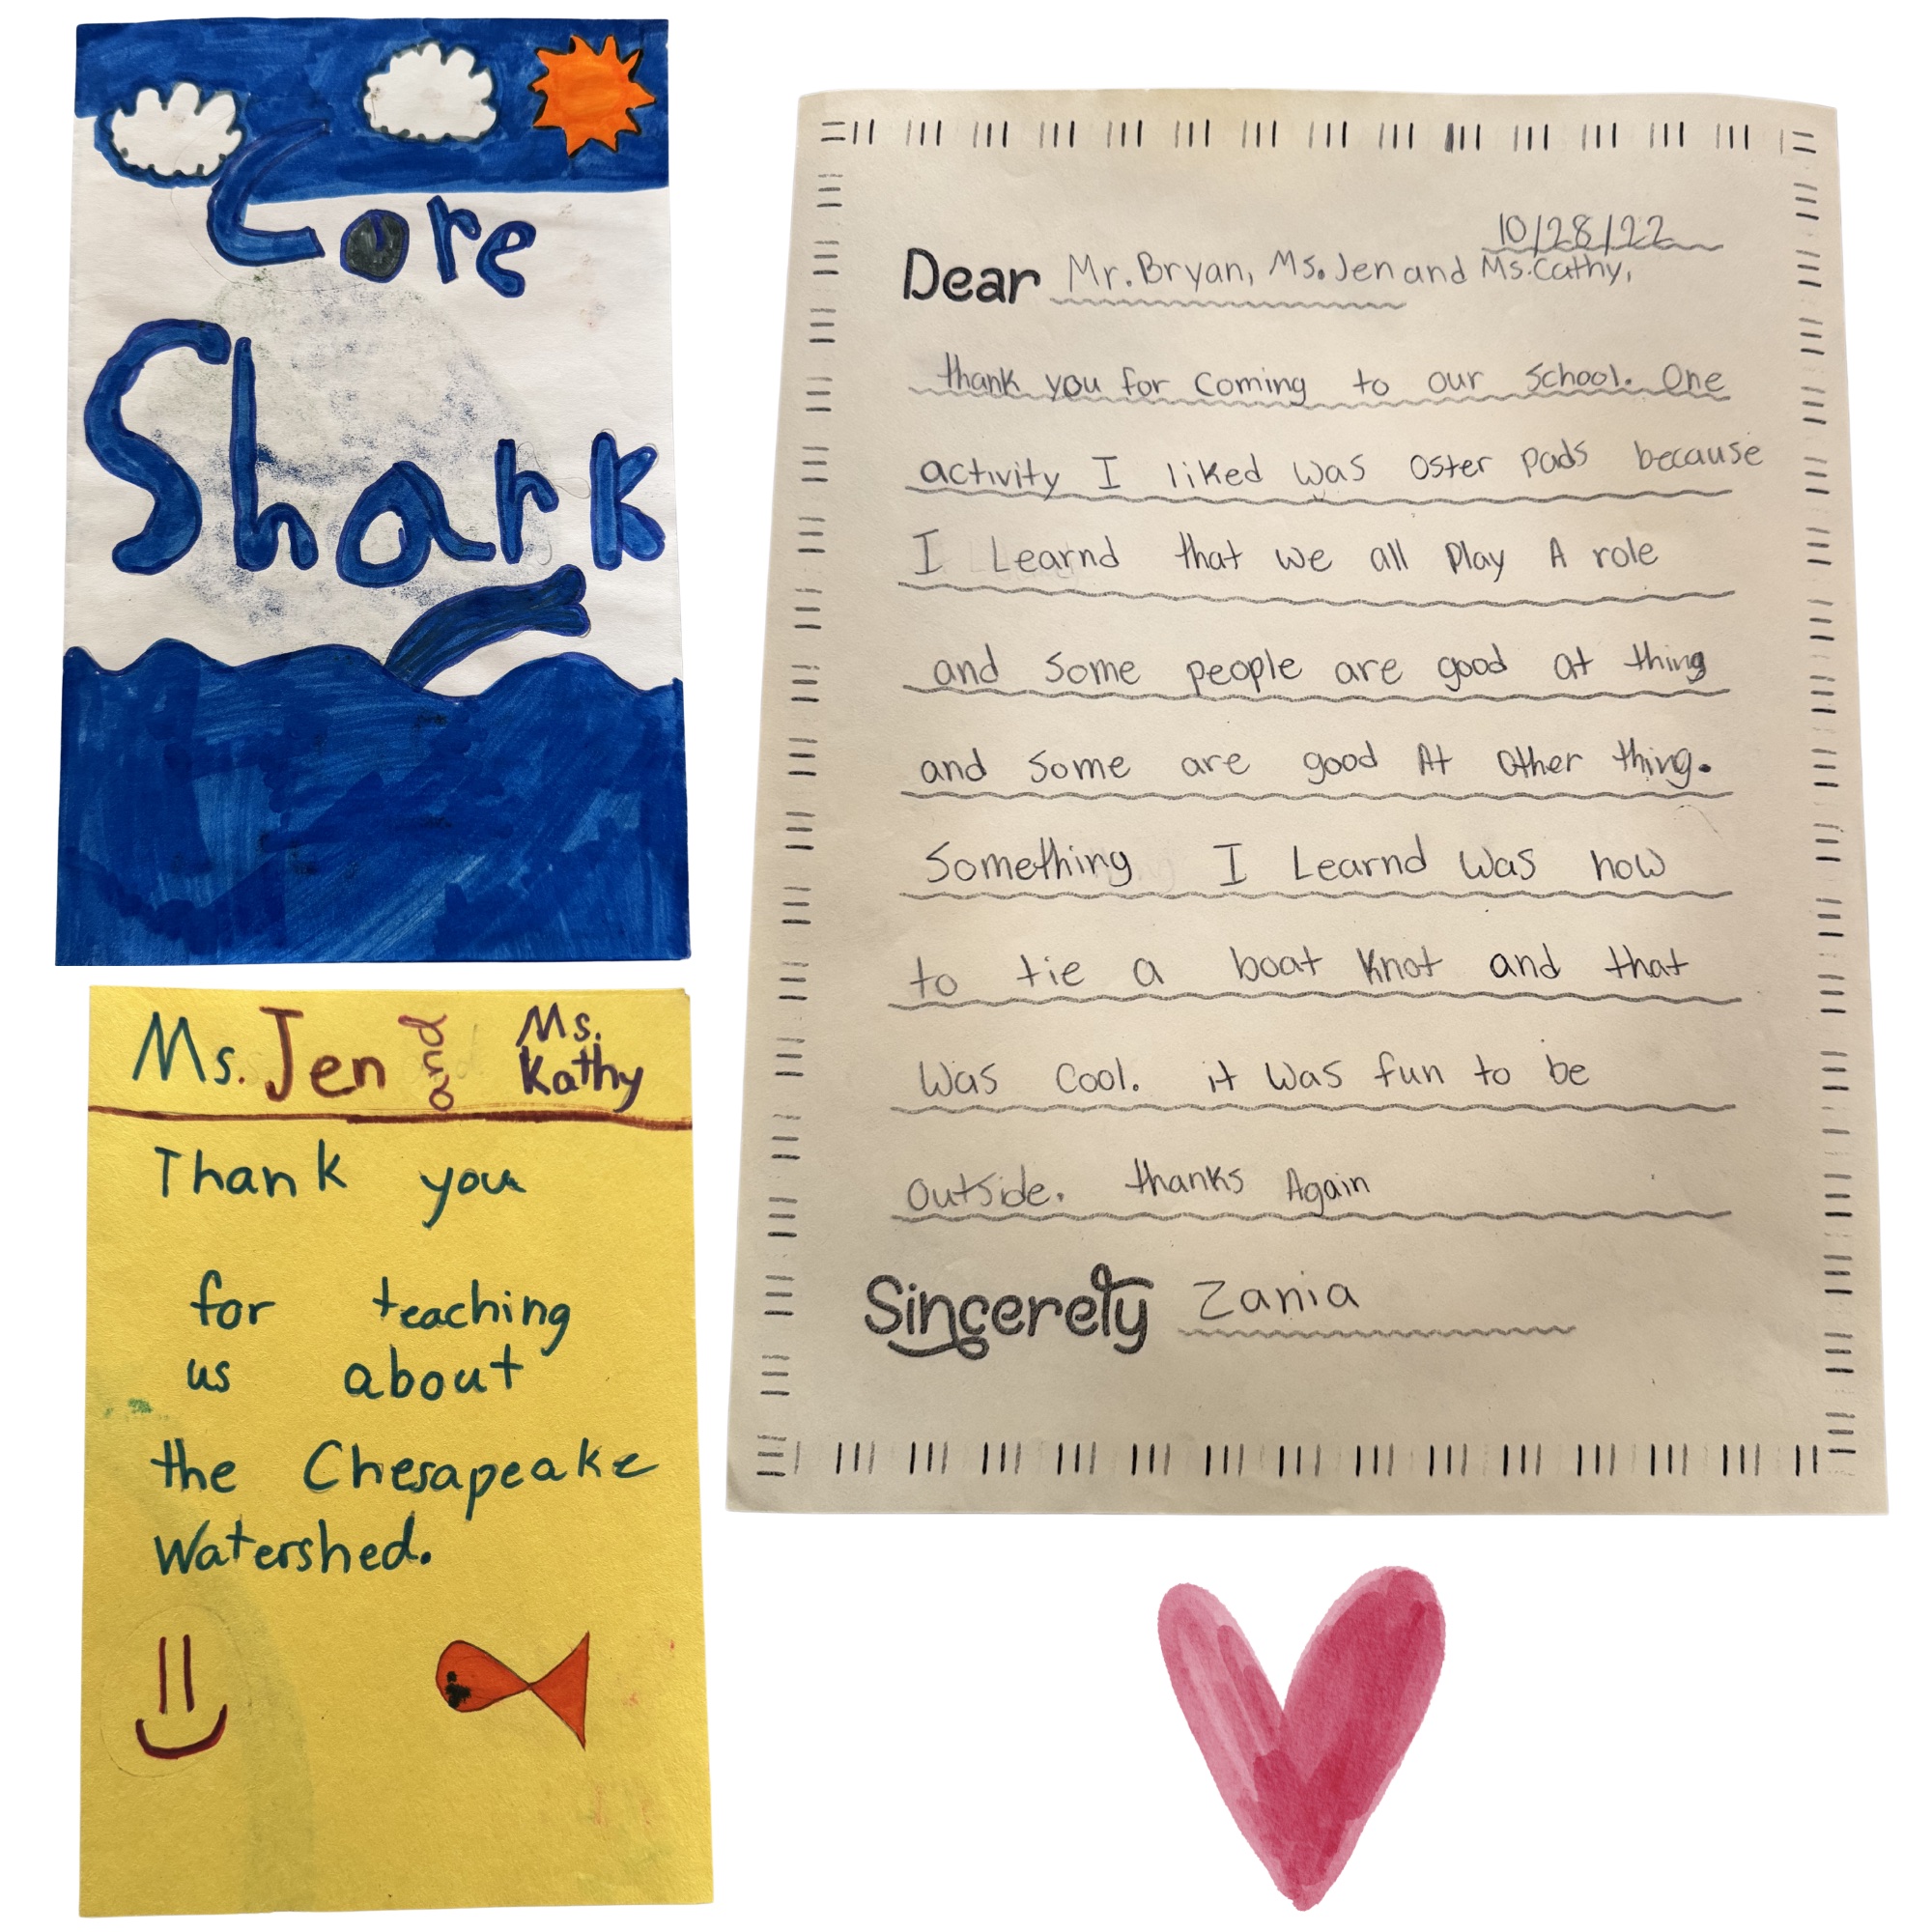 Core
Shark
Ms. Jen and Ms. Kathy
Thank you
for teaching
us about
the Chesapeake
Watershed.
10/28/22
Dear Mr. Bryan, Ms. Jen and Ms. Cathy,
thank you for coming to our school. One
activity I liked was Oster pads because
I Learnd that we all Play A role
and some people are good at thing
and some are good At Other thing.
Something I Learnd was how
to tie a boat knot and that
was cool. it was fun to be
outside. thanks Again
Sincerely Zania